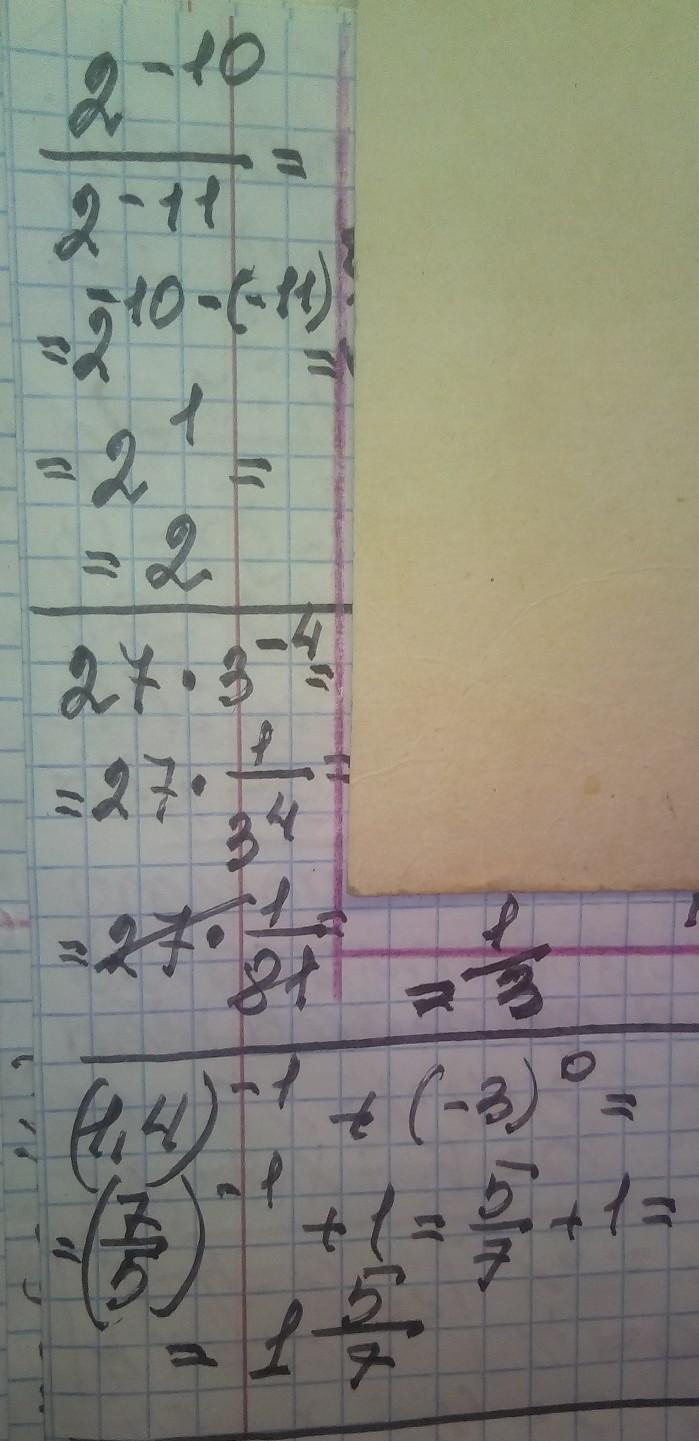 2^-10 / 2^-11 =
= 2^-10-(-11) =
= 2^1 =
= 2
27 · 3^-4 =
= 27 · 1/3^4 =
= 27 · 1/81 = = 1/3
(1,4)^-1 + (-3)^0 =
= (7/5)^-1 + 1 = 5/7 + 1 =
= 1 5/7